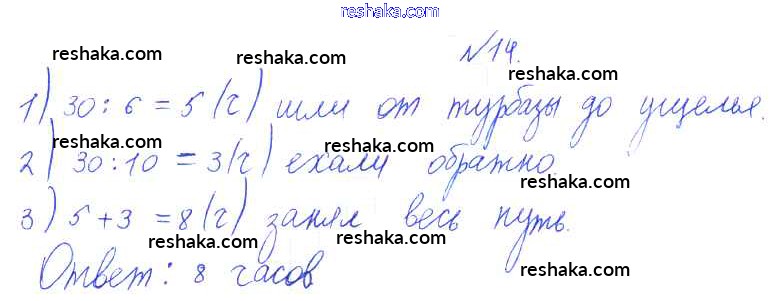 www.reshaka.com
reshaka.com
№14.
reshaka.com reshaka.com
1) 30 : 6 = 5 (ч) шли от турбазы до ущелья.
reshaka.com reshaka.com
2) 30 : 10 = 3 (ч) ехали обратно.
reshaka.com reshaka.com
3) 5 + 3 = 8 (ч) занял весь путь.
reshaka.com reshaka.com
Ответ: 8 часов
reshaka.com